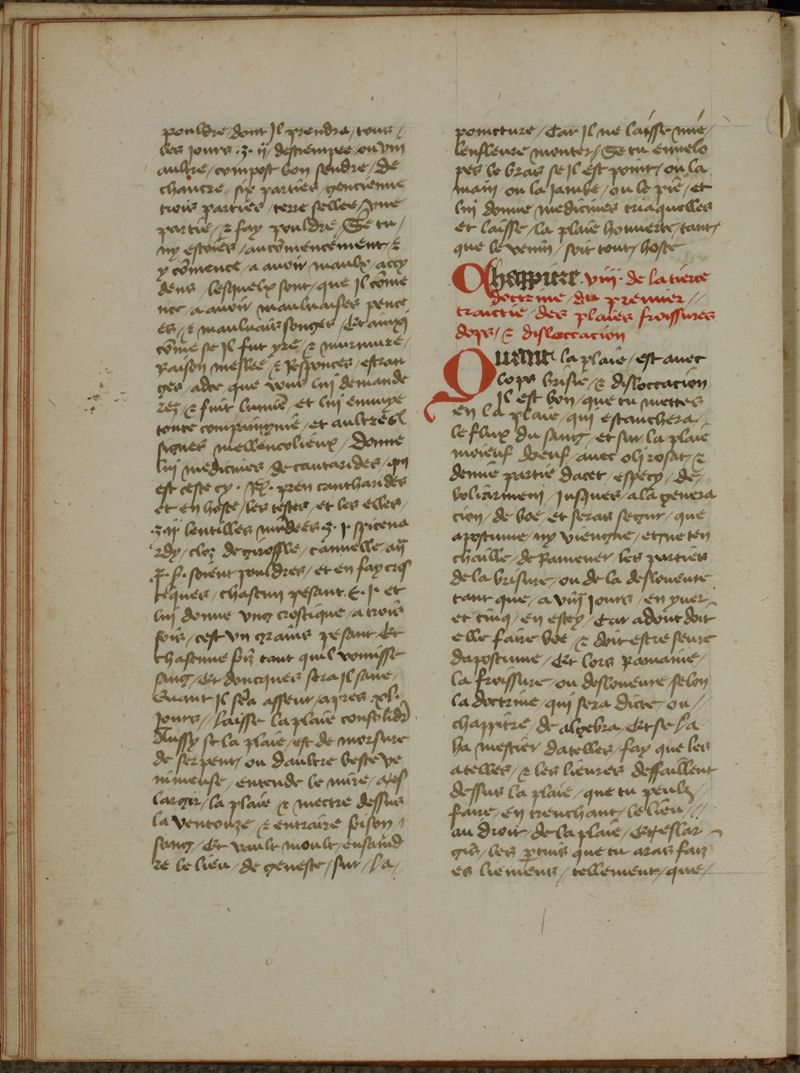 pouldre / dont Il prendra / tous /
les jours .ʒ. ij / destrempee / ou vin
aultre / compost bon sendre / de
chancre / six parties gencienne
trois parties / terre sellee / vne
partie / ⁊ fay pouldre / Se tu /
ny estoies / au cōmencement / ⁊
y cōmence / a auoir maulx accy
dens / lesquelx sont / que Il cōme
nce / a auoir mauluaises pence
es / ⁊ mauluais songes / Et ainsi
cōme se Il fut yre / ⁊ murmure /
Raison meslee / ⁊ Responces / estran
ges / adce que vous lui demande
rez / ⁊ fuit lumiē / et lui ennuye
toute compaignie / et aultres
signes mellencolieux / Donne
lui medicines de cantarides / qui
est ceste cy . Rx. pren cantharides
et en hoste / les testes / et les elles /
.ʒ. ij lentilles mūdees ʒ. j. spicena
rdy / cloz de giroffle / cannelle / an
soient pouldres / et en fay
chascun pesant .j. et
lui donne vng / a trois
fois / cest vn grains pesant / Et
chascune tant quil vomisse
sang / Et doncques sera Il saue /
Quant Il sera asseur / apres .xl.
Jours / laisse la plaie consolider
Aussy se la plaie / est de morsure
de serpent / ou daultre beste ve
nimeuse / entende le mire / a les
larger / la plaie ⁊ mectre dessus
la ventouze / ⁊ entraire
sang / Et vault moult / ensaind
re le lieu / de geneste / sur / la /
poincture / Car Il ne laisse mie /
lenfleure monter / Se tu enuelo
pes le bras se Il est point / ou la
main ou la Jambe / ou le pie / et
lui donne medicines triaquelles
et laisse / la plaie houuerte / tant /
que le venin / soit tout / hoste
Chappitre .viij. de la tierce
doctrine / du premier //
traictie / des plaies froissures
dops / ⁊ disloccacion
Quant la plaie / est auec
lops brisie / ⁊ disloccacion
Il est bon / que tu mettes
en la plaie / qui estanchera /
le flux du sang / et sur la plaie
moieuf doeuf / auec oli rosat / ⁊
demie partie dacet / especy / de
boliarmeni / jusques / a la genera
cion / de boe / et seras segur / que
apostume / ny viengne / et ne ten
chaille / de Ramener les parties
de la brisure / ou de la desloueure
tant que / a viij jours / en yuer
et cinq / en estey / Car adont doit
elle faire boe ⁊ doit estre seure
dapostume / Et lors Ramaine /
la froissure / ou desloueure / selon
la doctrine / qui sera dicte / ou /
chappitre / de algebra / Et se la
ha mestier datelles / fay que les
atelles / ⁊ les lieures deffaillent
dessus la plaie / que tu peulz /
faire / en trenchant / le lieu //
au droit de la plaie / Et eslar
gis / les ꝑtuis que tu aras faiz
es liemens / tellement / que /